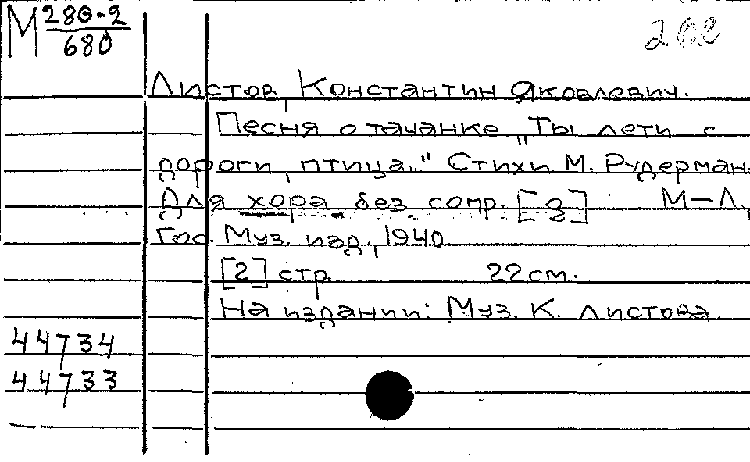 М 280-2
680
202
Листов, Константин Яковлевич.
Песня о тачанке „Ты лети с
дороги, птица." Стихи М. Рудерман.
Для хора без сопр. [3] М-Л,
Гос. Муз. изд., 1940
[2] стр 22 см.
На издании: Муз. К. Листова.
44734
44733